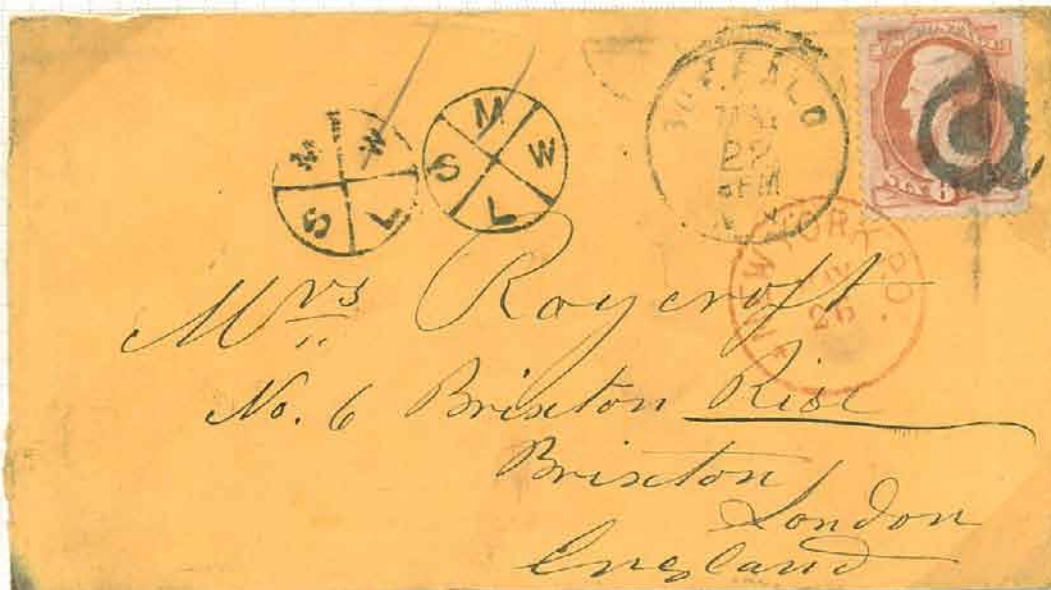 M W L S
M W L S
BUFFALO
22
PM
N.Y.
NEW YORK P.O.
25
Mrs Roycroft
No. 6 Brixton Rise
Brixton
London
England